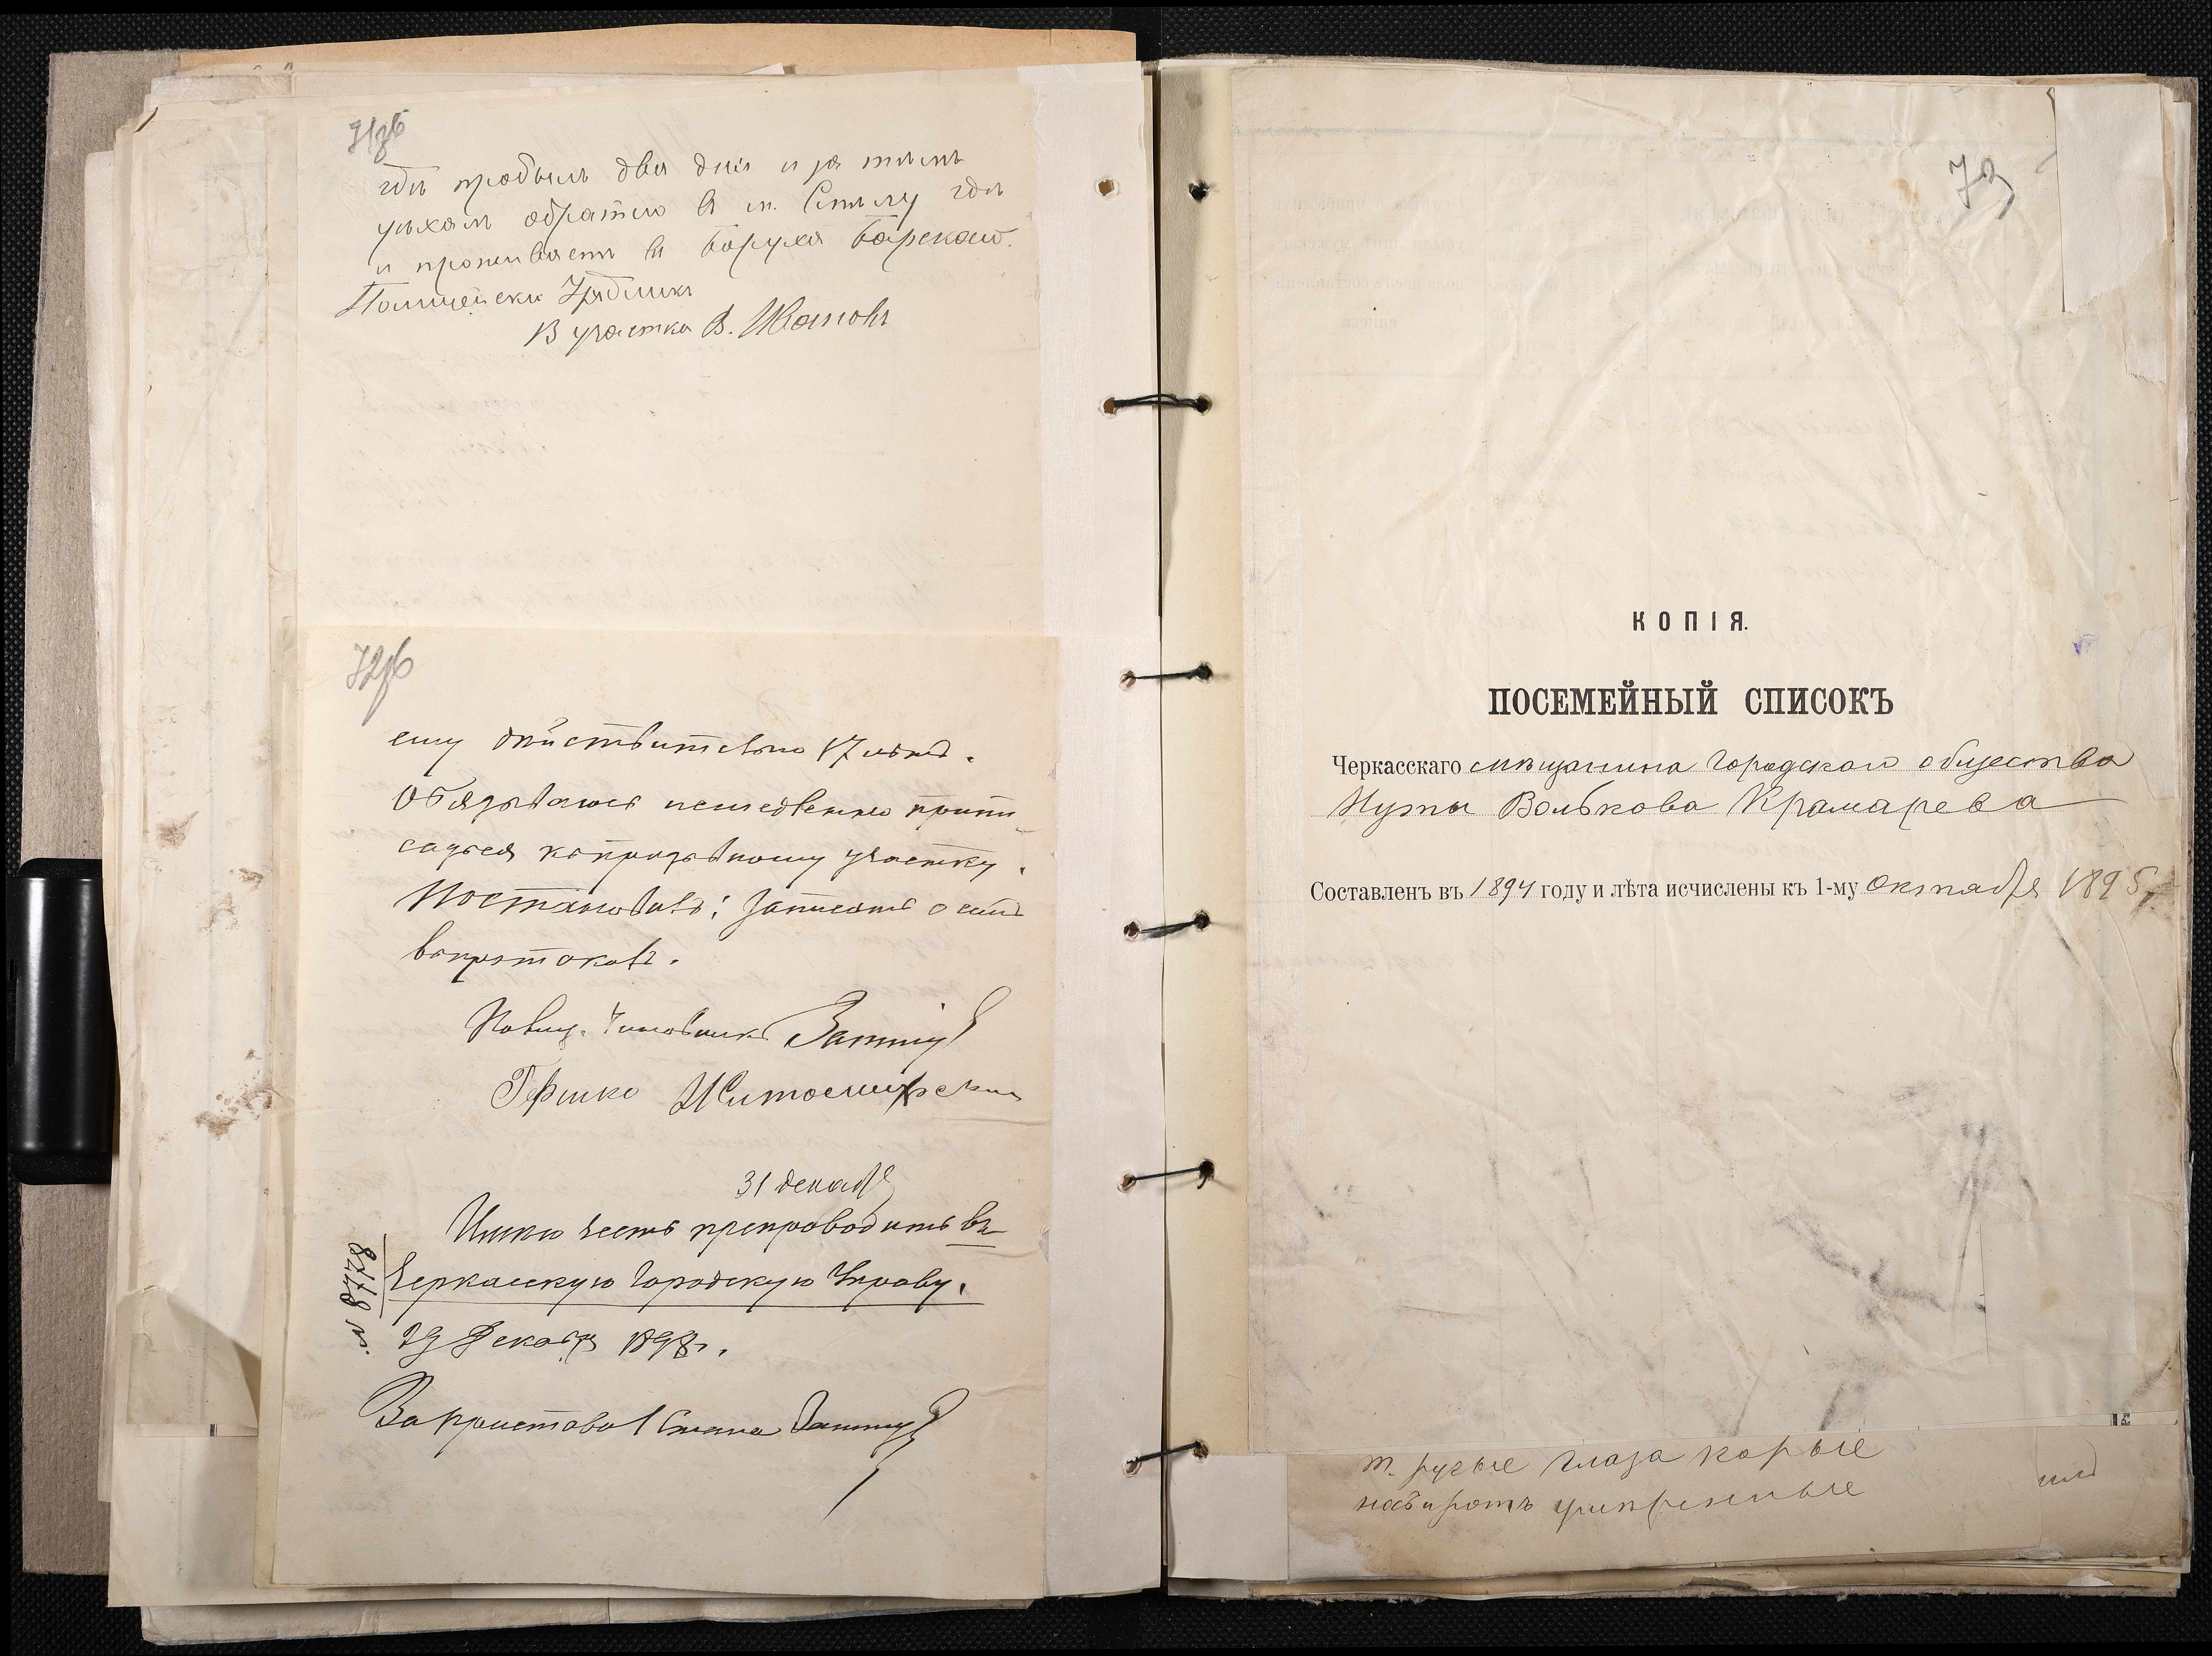 71об
гдѣ пробылъ два дня и за тѣмъ
уѣхалъ обратно в м. Смѣлу гдѣ
и проживаетъ в Боруха Барскаго.
Полицейски Урядникъ
В участка В. Ивановъ
72об
ему дѣйствительно 17 лѣтъ.
Обязываюсь немедленно припи-
саться къ призывному участку.
Постановилъ: записать о семъ
въ протоколъ.
Полиц. Чиновникъ
Гершко Житомирскій
31 декабр
Имѣю честь препроводить въ
Черкасскую Городскую Управу.
29 Декабря 1893 г.
№ 8778
За Пристава 1 Стана
73
КОПІЯ.
ПОСЕМЕЙНЫЙ СПИСОКЪ
Черкасскаго мѣщанина Городскаго общества
Нуты Волькова Крамарева
Составленъ въ 1894 году и лѣта исчислены къ 1-му Октября 1895 г.
т. русые глаза карые
носъ и ротъ умѣренные